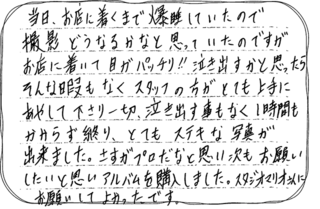 当日、お店に着くまで爆睡していたので
撮影どうなるかなと思っていたのですが
お店に着いて目がパッチリ!!泣き出すかと思ったら
そんな暇もなくスタッフの方がとても上手に
あやして下さり一切、泣き出す事もなく1時間も
かからず終り、とてもステキな写真が
出来ました。さすがプロだなと思い次もお願い
したいと思いアルバムを購入しました。スタジオマリオさんに
お願いしてよかったです。